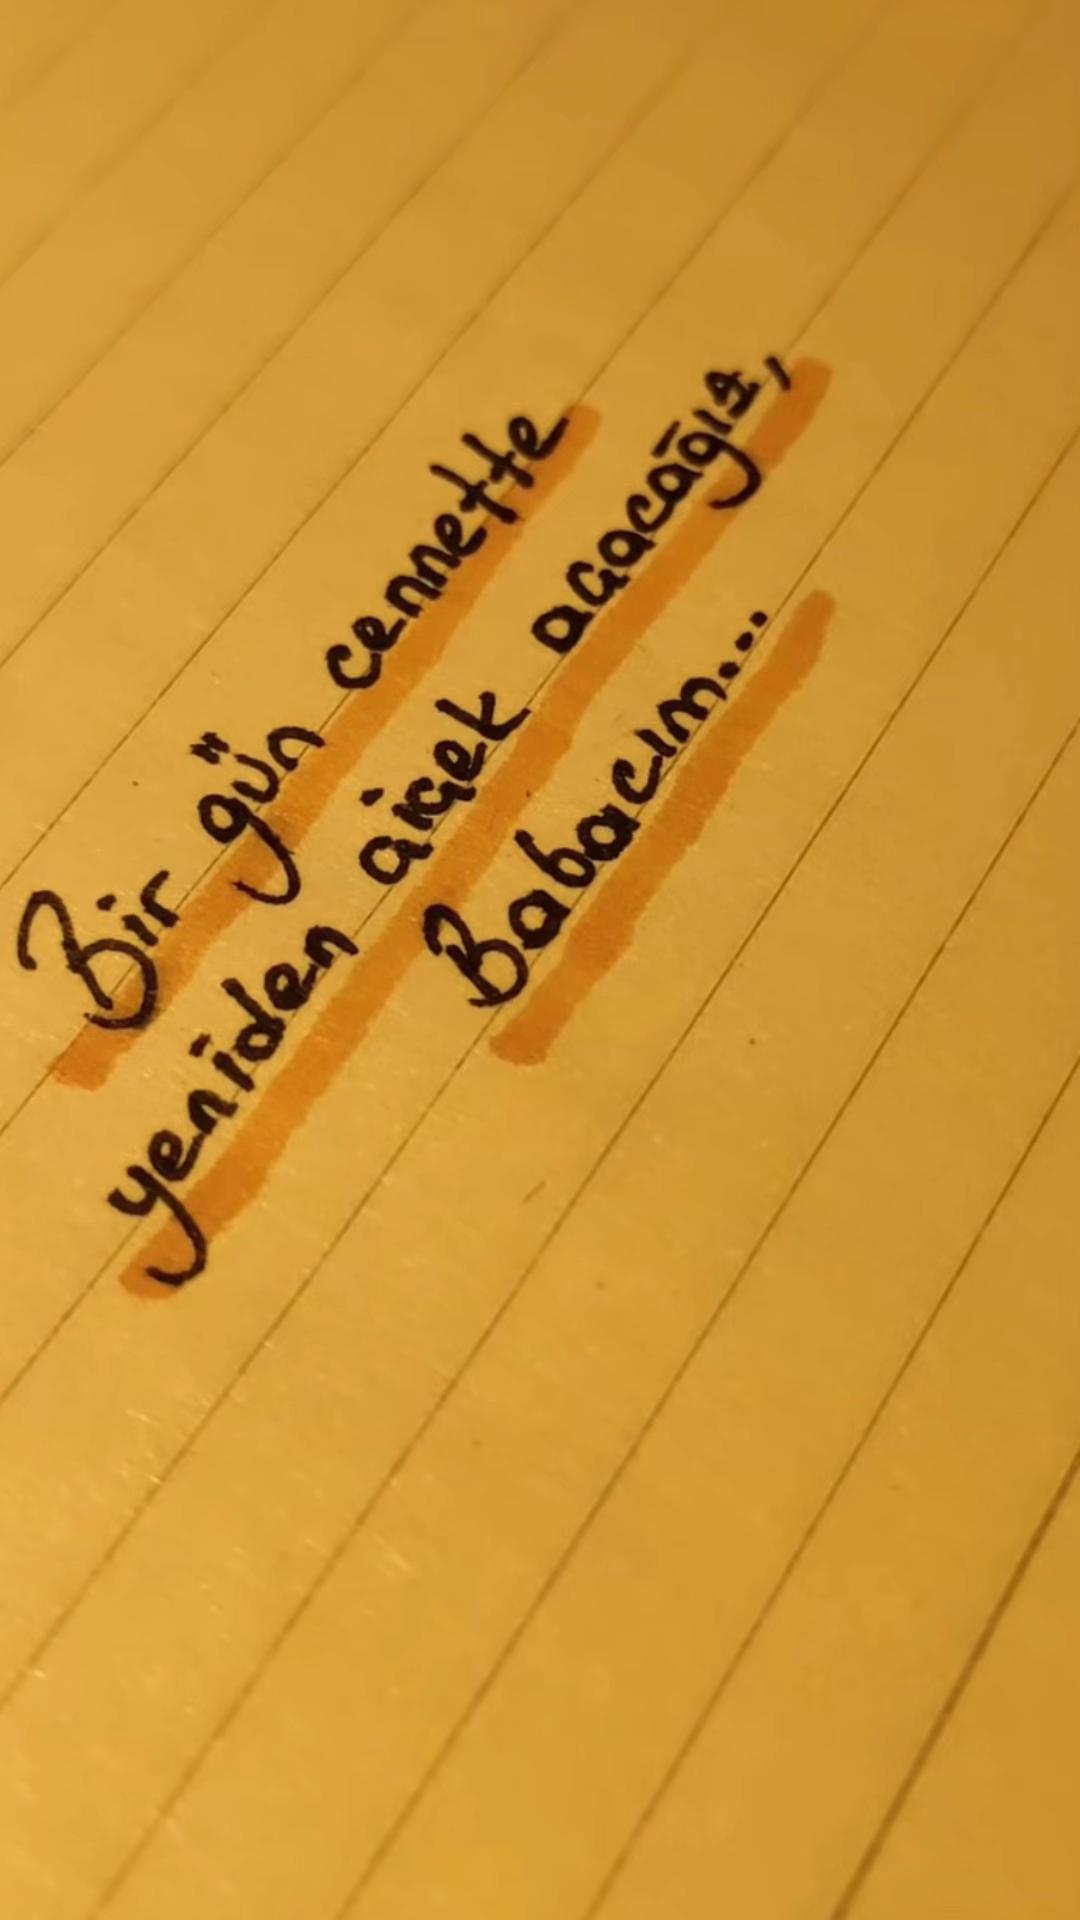 Bir gün cennette
yeniden çiçek açacağız,
Babacım...